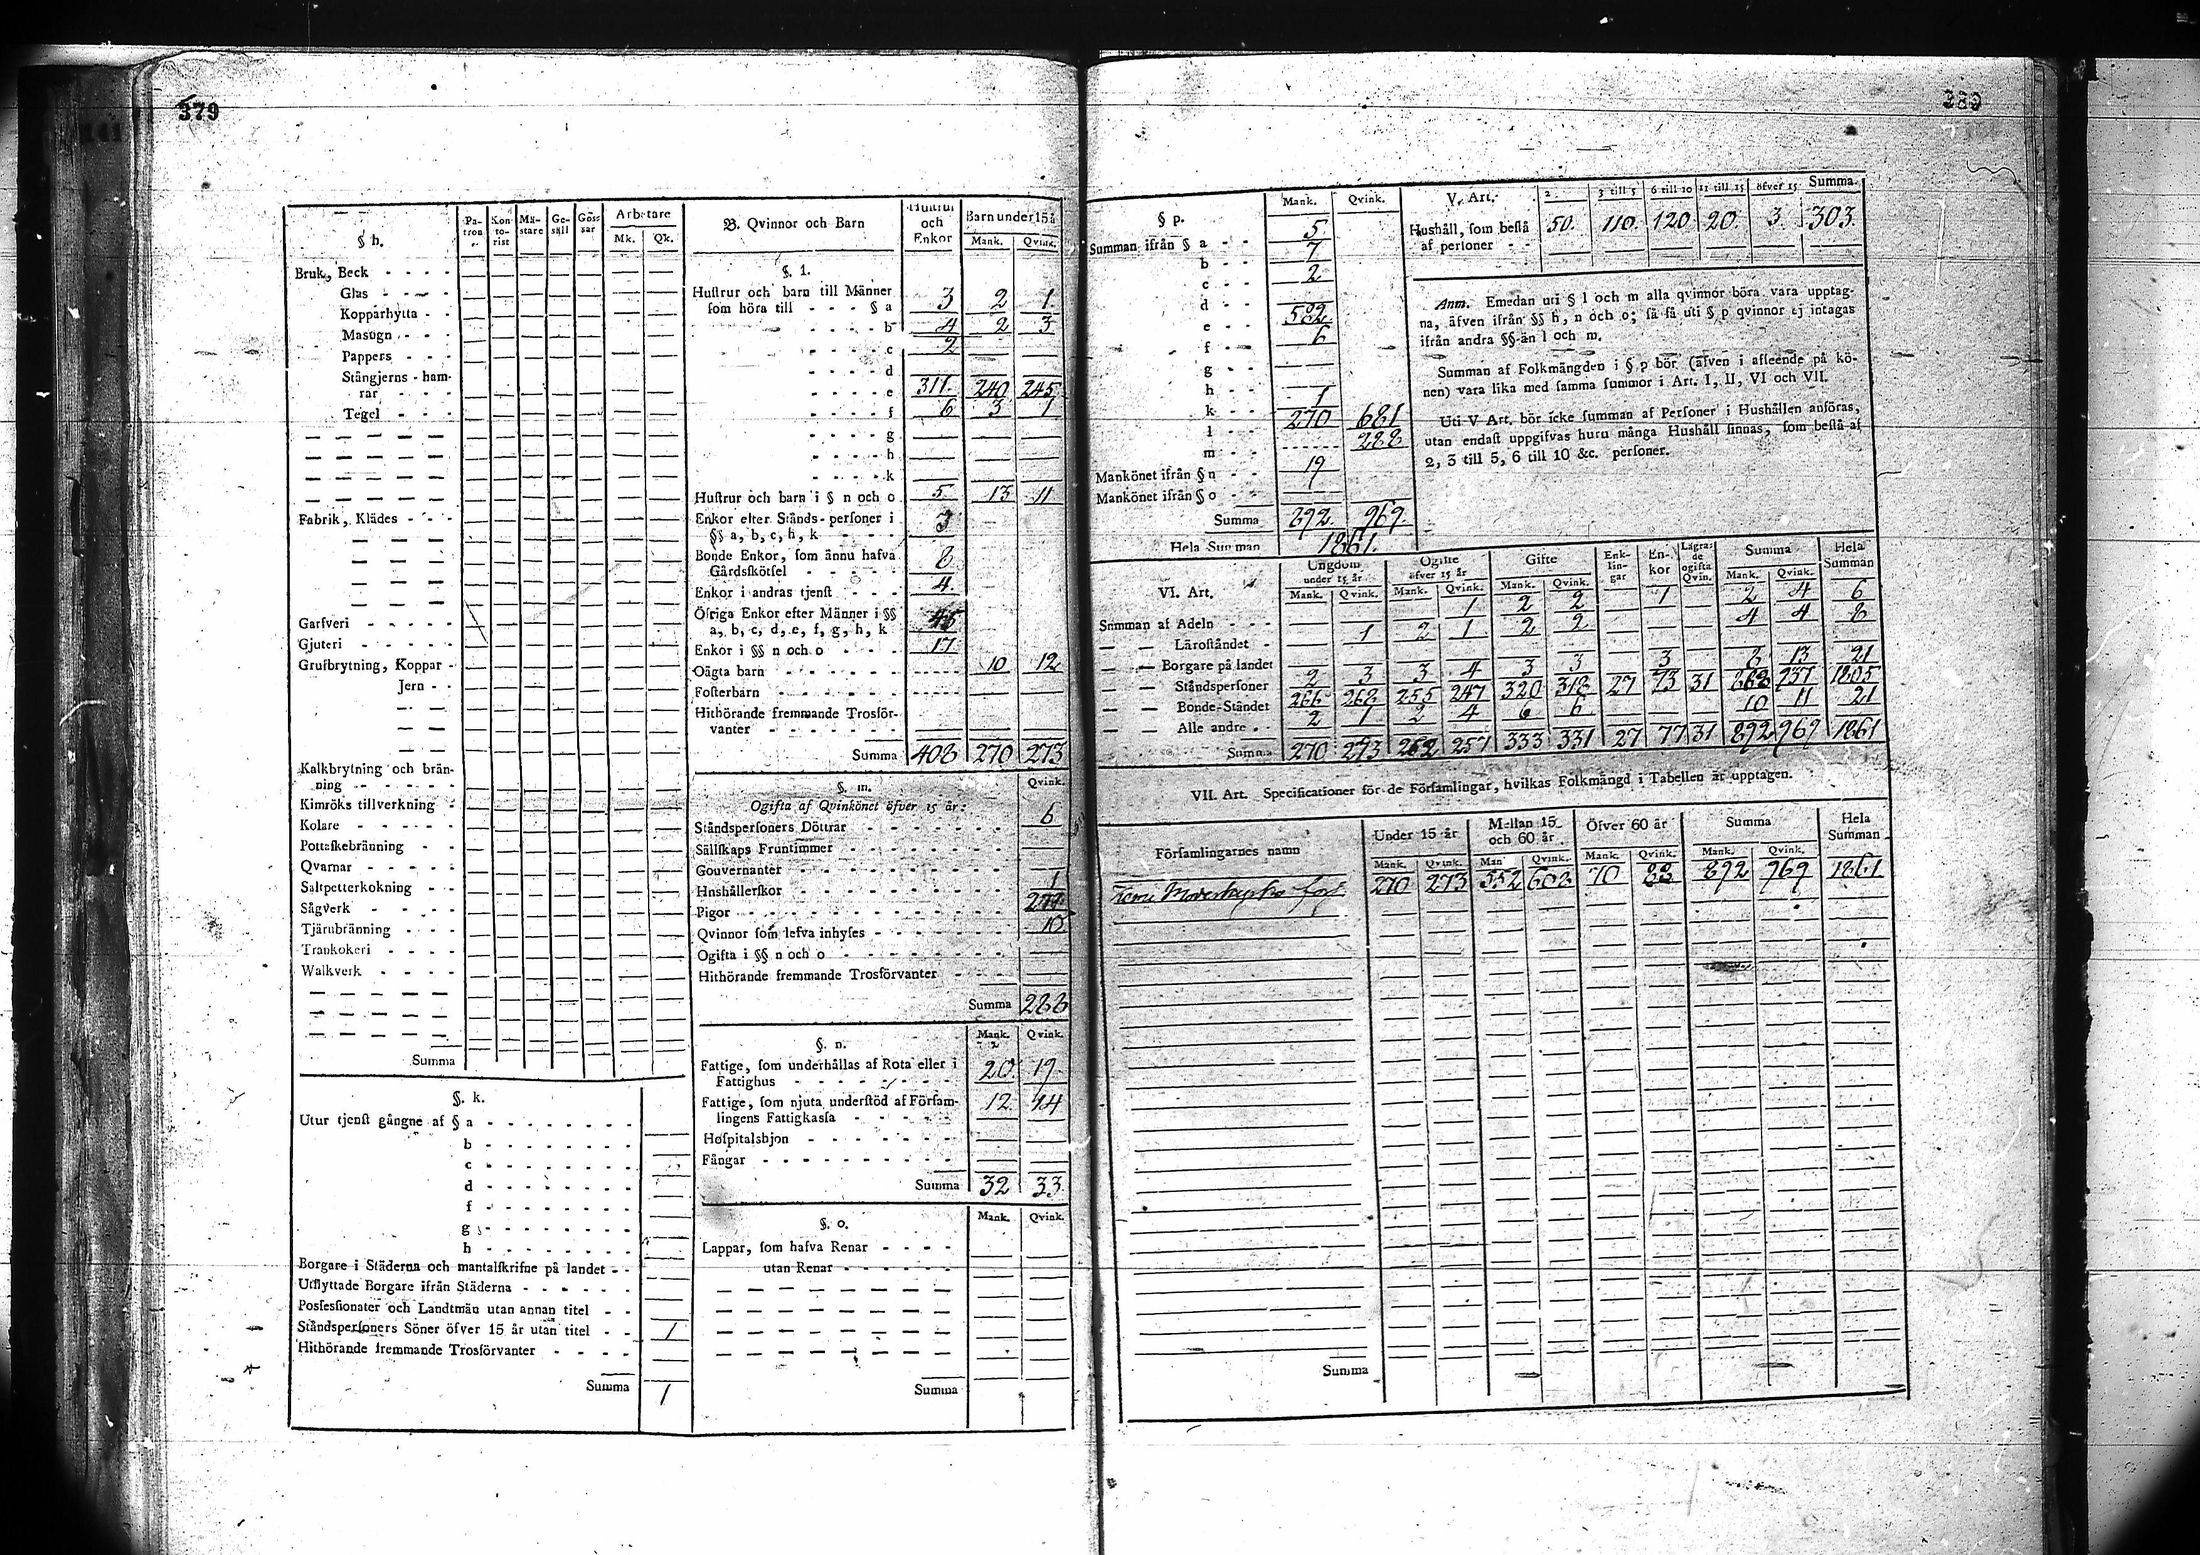 379
§ h.
Pa-tron. Kon-to-rist Mä-stare Ge-säll Gos-sar Arbetare
Mk. Qk.
Bruk, Beck - - - -
Glas - - - -
Kopparhytta - -
Masugn - - -
Pappers - - -
Stångjerns-ham-
rar - - - -
Tegel - - - -
Fabrik, Klädes - - -
Garfveri - - - - -
Gjuteri - - - - -
Grufbrytning, Koppar -
Jern - -
Kalkbrytning och brän-
ning - - - - -
Kimröks tillverkning -
Kolare - - - - -
Pottaskebränning - -
Qvarnar - - - - -
Saltpetterkokning - -
Sågverk - - - - -
Tjärubränning - - -
Trankokeri - - - -
Walkverk - - - -
Summa
§. k.
Utur tjenst gångne af § a - - - - - - - -
b - - - - - - - -
c - - - - - - - -
d - - - - - - - -
f - - - - - - - -
g - - - - - - - -
h - - - - - - - -
Borgare i Städerna och mantalskrifne på landet - -
Utflyttade Borgare ifrån Städerna - - - - - -
Possessionater och Landtmän utan annan titel - -
Ståndspersoners Söner öfver 15 år utan titel - - 1
Hithörande fremmande Trosförvanter - - - -
Summa 1
B. Qvinnor och Barn
Hustrur och Enkor Barn under 15 å
Mank. Qvink.
§. 1.
Hustrur och barn till Männer
som höra till - - - § a 3 2 1
- - - - b 4 2 3
- - - - c 2
- - - - d
- - - - e 311. 240 245
- - - - f 6 3 1
- - - - g
- - - - h
- - - - k
Hustrur och barn i § n och o 5 13 11
Enkor efter Stånds-personer i
§§ a, b, c, h, k - - - - 3
Bonde Enkor, som ännu hafva
Gårdsskötsel - - - - - 8
Enkor i andras tjenst - - - 4.
Öfriga Enkor efter Männer i §§
a, b, c, d, e, f, g, h, k 45
Enkor i §§ n och o - - - - 17
Oägta barn - - - - - - 10 12
Fosterbarn - - - - - - -
Hithörande fremmande Trosför-
vanter - - - - - - -
Summa 408 270 273
§. m.
Qvink.
Ogifta af Qvinkönet öfver 15 år:
Ståndspersoners Döttrar - - - - - - - 6
Sällskaps Fruntimmer - - - - - - - -
Gouvernanter - - - - - - - - - -
Hushållerskor - - - - - - - - - - 1
Pigor - - - - - - - - - - - -
Qvinnor som lefva inhyses - - - - - - - 10
Ogifta i §§ n och o - - - - - - - - -
Hithörande fremmande Trosförvanter - - - -
Summa 288
§. n.
Mank. Qvink.
Fattige, som underhållas af Rota eller i
Fattighus - - - - - - - - 20 19
Fattige, som njuta understöd af Försam-
lingens Fattigkassa - - - - - - 12 14
Hospitalshjon - - - - - - - -
Fångar - - - - - - - - - -
Summa 32 33.
§. o.
Mank. Qvink.
Lappar, som hafva Renar - - - -
utan Renar - - - - - -
Summa
380
§ p.
Mank. Qvink.
Summan ifrån § a - - 5
b - - 7
c - - 2
d - -
e - - 582
f - - 6
g - -
h - -
k - - 1
l - - 270 681
m - - 288
Mankönet ifrån § n - - 19
Mankönet ifrån § o - -
Summa 892. 969.
Hela Summan 1861.
V. Art. 2 3 till 5 6 till 10 11 till 15 öfver 15 Summa
Hushåll, som bestå
af personer - - 50. 110. 120 20. 3. 303.
Anm. Emedan uti § l och m alla qvinnor böra vara upptag-
na, äfven ifrån §§ h, n och o; så få uti § p qvinnor ej intagas
ifrån andra §§-än l och m.
Summan af Folkmängden i § p bör (äfven i afseende på kö-
nen) vara lika med samma summor i Art. I, II, VI och VII.
Uti V Art. bör icke summan af Personer i Hushållen anföras,
utan endast uppgifvas huru många Hushåll finnas, som bestå af
2, 3 till 5, 6 till 10 &c. personer.
VI. Art.
Ungdom under 15 år Ogifte öfver 15 år Gifte Enk-lin-gar En-kor Lägrade ogifta Qvin. Summa Hela Summan
Mank. Qvink. Mank. Qvink. Mank. Qvink. Mank. Qvink.
Summan af Adeln - - - 1 2 2 1 2 4 6
Läroståndet - 1 2 1 2 2 4 4 8
Borgare på landet
Ståndspersoner 2 3 3 4 3 3 3 8 13 21
Bonde-Ståndet 266 268 255 247 320 318 27 73 31 868 937 1805
Alle andre - 2 1 2 4 6 6 10 11 21
Summa 270 273 262 257 333 331 27 77 31 892 969 1861
VII. Art. Specificationer för de Församlingar, hvilkas Folkmängd i Tabellen är upptagen.
Församlingarnes namn Under 15 år Mellan 15 och 60 år Öfver 60 år Summa Hela Summan
Mank. Qvink. Man Qvink. Mank. Qvink. Mank. Qvink.
270 273 552 608 70 88 892 969 1861
Summa